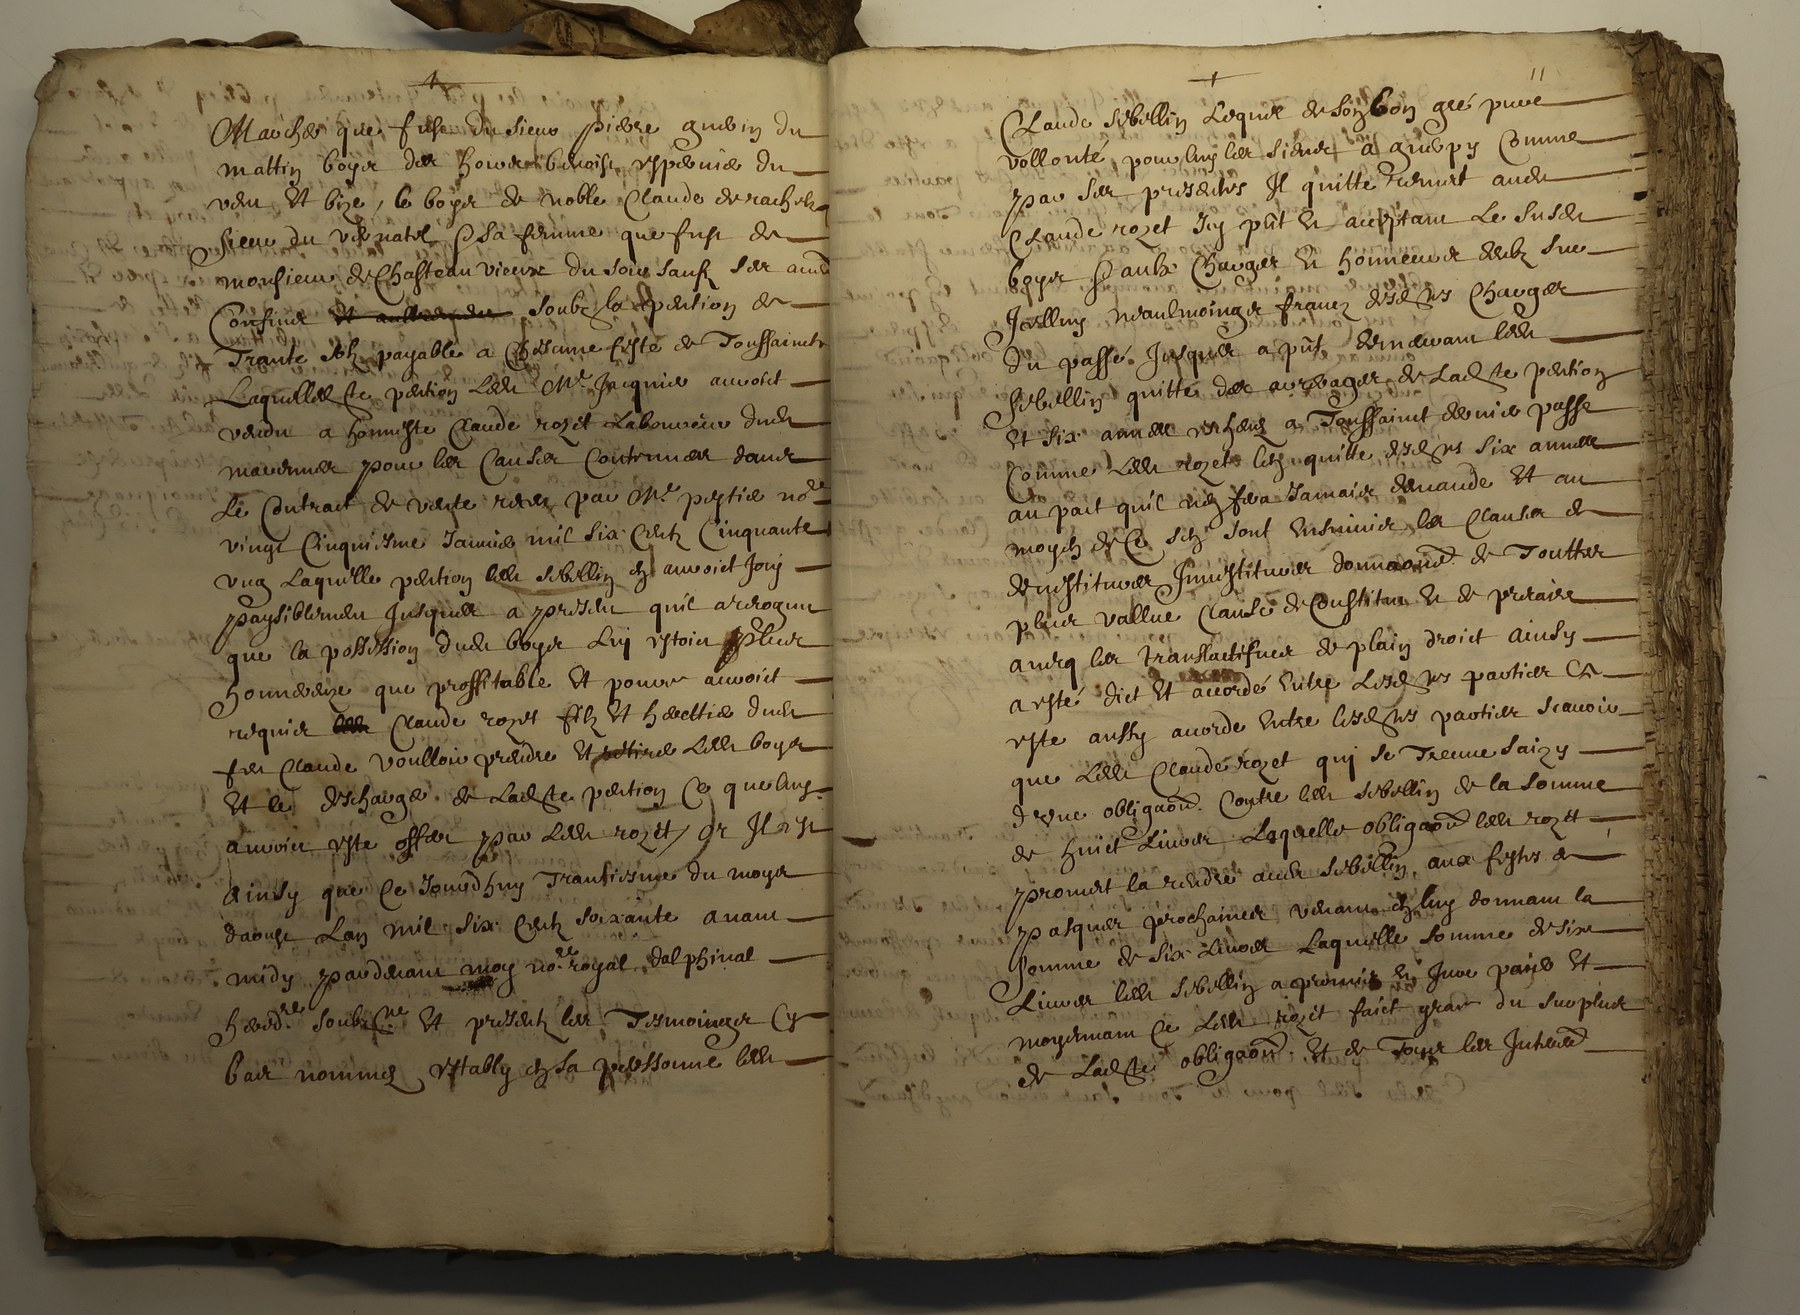 Marches que fust du sieur pierre guerin du
mattin boys des hoirs benoist espernié du
vent Et bize, le boys de noble Claude de rachais
sieur du vernatel & sa femme que fust de
monsieur de Chasteau vieux du soir sauf ses aues
Confins Et aultres soubz la pention de
Trante solz payable a Chescune feste de Toussaincts
Laquelle dte pention ledt Me Jacquier auroict
vendu a honneste Claude rozet Laboureur dudt
pour les Causes Contenues dans
Le Contract de vente receu par Me no.re
vingt Cinquiesme Januier mil six Centz Cinquante
vng Laquelle pention ledt sibellin en auroict Jouy
paysiblement Jusques a present quil
que la possession dudt boys luy estoict plus
que proffitable Et pour ce auroict
requis ledt Claude rozet filz Et herettier dudt
feu Claude voulloir prendre Et retirer Ledt boys
Et le descharger de Ladte pention Ce que luy
auroict este offert par Ledt rozet, Or Il est
Ainsy que Ce Jourdhuy Trantiesme du moys
daoust Lan mil six Centz soixante auant
midy pardeuant moy no.re royal dalphinal
hered.re soubz.né Et presentz les Tesmoings Cy
bas nommez estably en sa personne ledt
11
Claude sibellin Lequel de son bon gré pure
vollonté, pour luy les siens a guerpy Comme
par ses presentes Il quitte remet audt
Claude rozet Icy pnt Et acceptant Le susdt
boys & aulx Charges Et honneurs deubz sur
Icelluy neaulmoings francz desdtes Charges
du passé Jusques a pnt demeurant ledt
Sibellin quitte des arrerages de Ladte pention
Et six années escheues a Toussainct dernier passé
Comme Ledt rozet len quitte desdtes six années
au pact qu'il nen fera Jamais demande Et au
moyen de Ce sen sont les Clauses de
deuestitures Inuestitures donnaon. de Touttes
plus vallue Clause de Constitue Et de precaire
auecq les translactifues de plain droict Ainsy
a esté dict Et accordé Entre Lesdtes parties Et a
este aussy accorde Entre lesdtes parties scauoir
que Ledt Claude rozet quj se Treuue saizy
d'vne obligaon. Contre ledt sibellin de la somme
de huict Liures Laquelle obligaon ledt rozet
promet la rendre audt Sibellin, aux festes de
pasques prochaines venant en luy donnant la
somme de six Liures Laquelle somme de six
Liures ledt Sibellin a promis Et Jure paier Et
moyennant Ce Ledt rozet faict grace du surplus
de Ladte obligaon. Et de Tous les Interestz